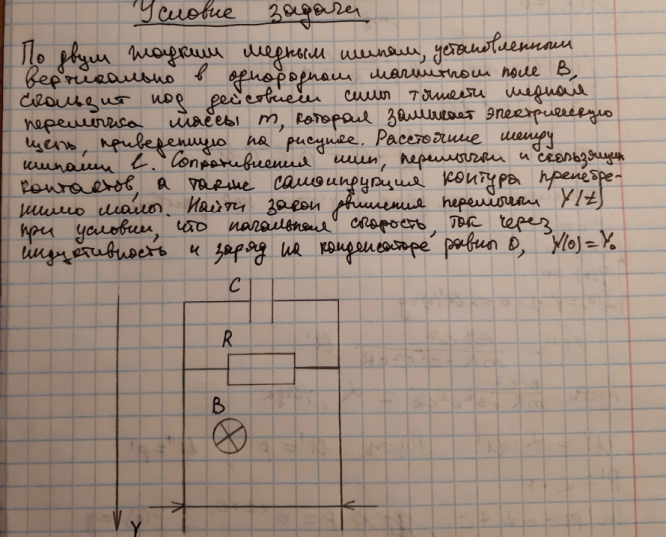 Условие задачи
По двум гладким медным шинам, установленным
вертикально в однородном магнитном поле B,
скользит под действием силы тяжести медная
перемычка массы m, которая замыкает электрическую
цепь, приведенную на рисунке. Расстояние между
шинами l. Сопротивления шин, перемычки и скользящих
контактов, а также самоиндукция контура пренебре-
жимо малы. Найти закон движения перемычки Y(t)
при условии, что начальная скорость, ток через
индуктивность и заряд на конденсаторе равны 0, Y(0)=Y₀
C
R
B
Y